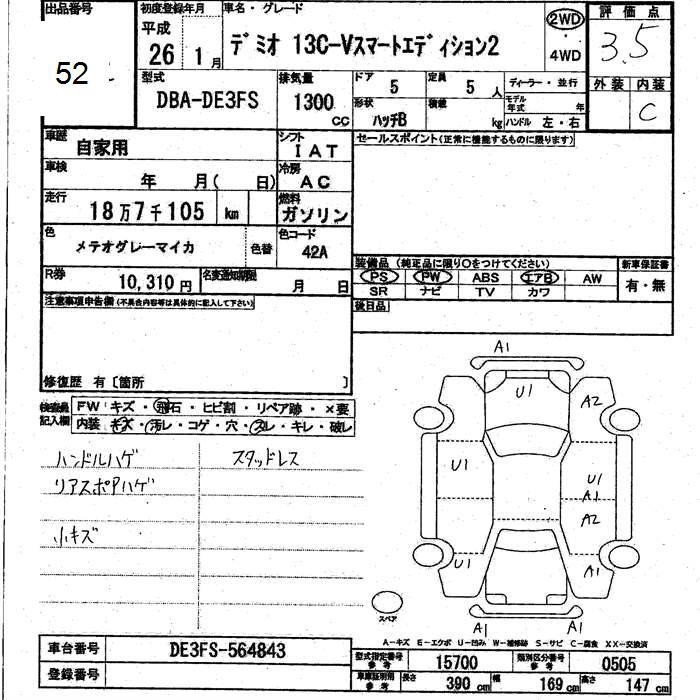 出品番号 初度登録年月 車名・グレード 評価点
52 平成 26 1月 デミオ 13C-Vスマートエディション2 2WD ・ 4WD 3.5
型式 排気量 ドア 5 定員 5人 ディーラー・並行 外装 内装
DBA-DE3FS 1300 CC 形状 ハッチB 積載 kg モデル年式 年 C
ハンドル 左・右
車歴 自家用 シフト IAT セールスポイント(正常に機能するものに限ります)
車検 年 月( 日) 冷房 AC
走行 18万7千105 km 燃料 ガソリン
色 メテオグレーマイカ 色替 色コード 42A
装備品 (純正品に限り○をつけてください) 新車保証書
R券 10,310円 名変通知期限 月 日 PS PW ABS エアB AW 有・無
SR ナビ TV カワ
注意事項申告欄(不具合内容等は具体的に記入して下さい) 後日品
修復歴 有〔箇所 〕
検査員記入欄 FW キズ・飛石・ヒビ割・リペア跡・×要
内装 キズ・汚レ・コゲ・穴・スレ・キレ・破レ
ハンドルハゲ スタッドレス
リアスポアハゲ
小キズ
A1
U1 A2
U1 U1
A1
A2
U1 A1
A1 A1
スペア
A-キズ E-エクボ U-凹み W-補修跡 S-サビ C-腐食 XX-交換済
車台番号 DE3FS-564843 型式指定番号 参考 15700 類別区分番号 参考 0505
登録番号 車庫証明用 参考 長さ 390 cm 幅 169 cm 高さ 147 cm